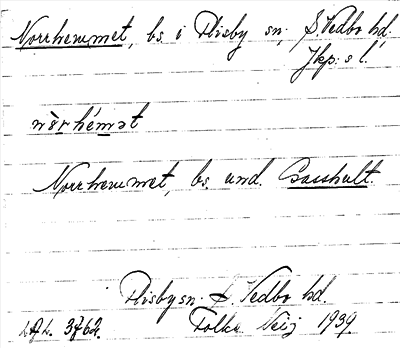 Norrhemmet, bs. i Flisby sn; S. Vedbo hd.
Jkp:s l.
nòrhémət
Norrhemmet, bs. und.
Flisby sn. S. Vedbo hd.
Folke 1939.
3762.